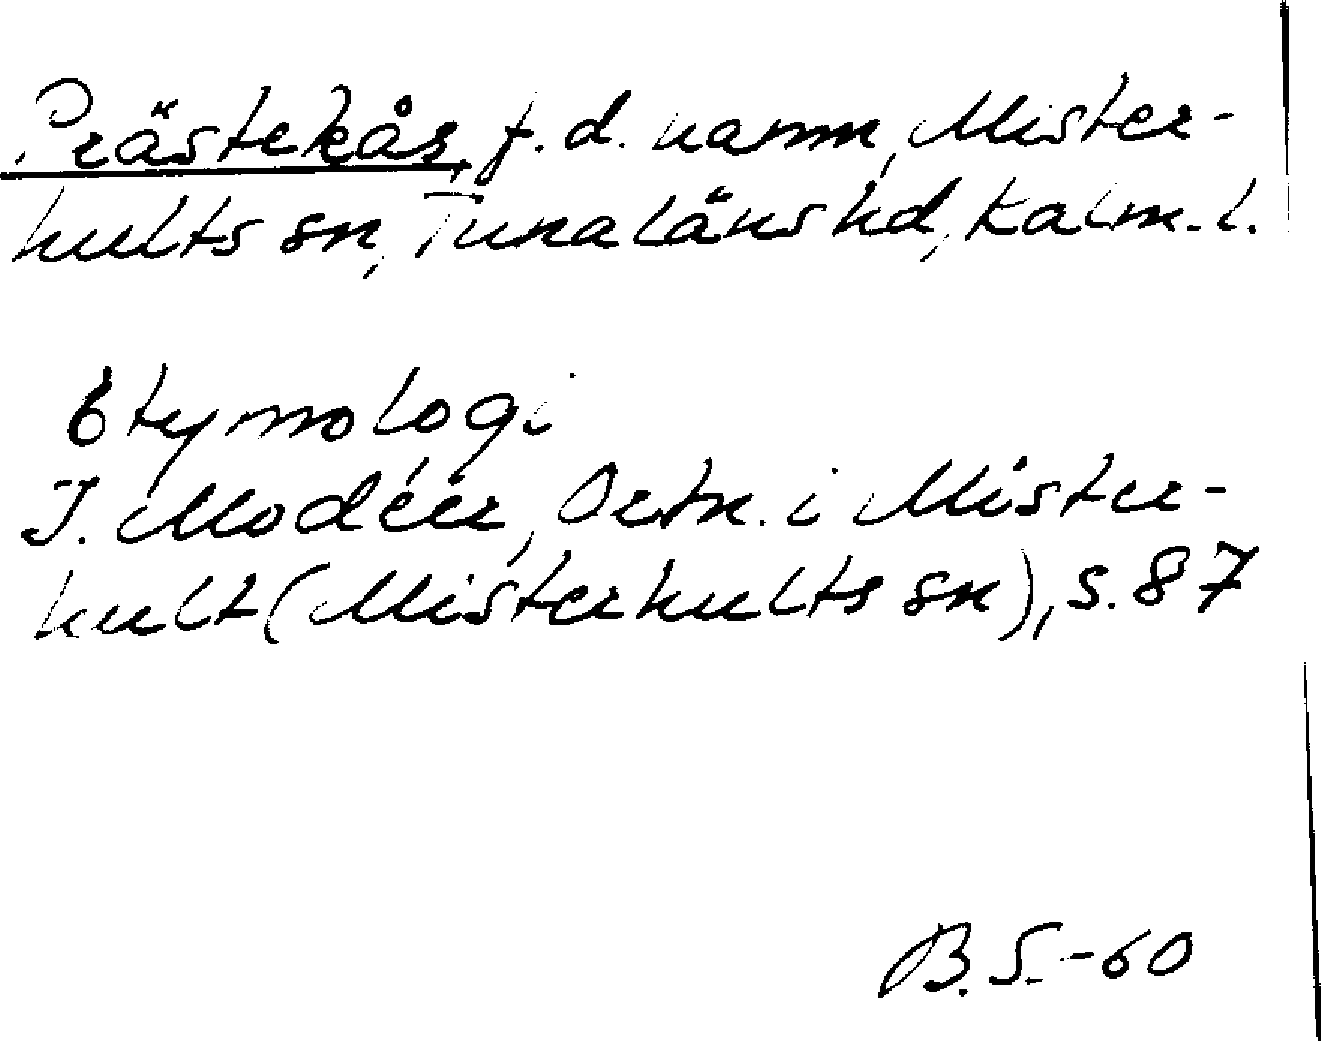 Prästekås, f.d. hamn, Mister-
hults sn, Tunaläns hd, Kalm. l.
Etymologi
I. Modéer, Ortn. i Mister-
hult (Misterhults sn), s. 87
B.S.-60